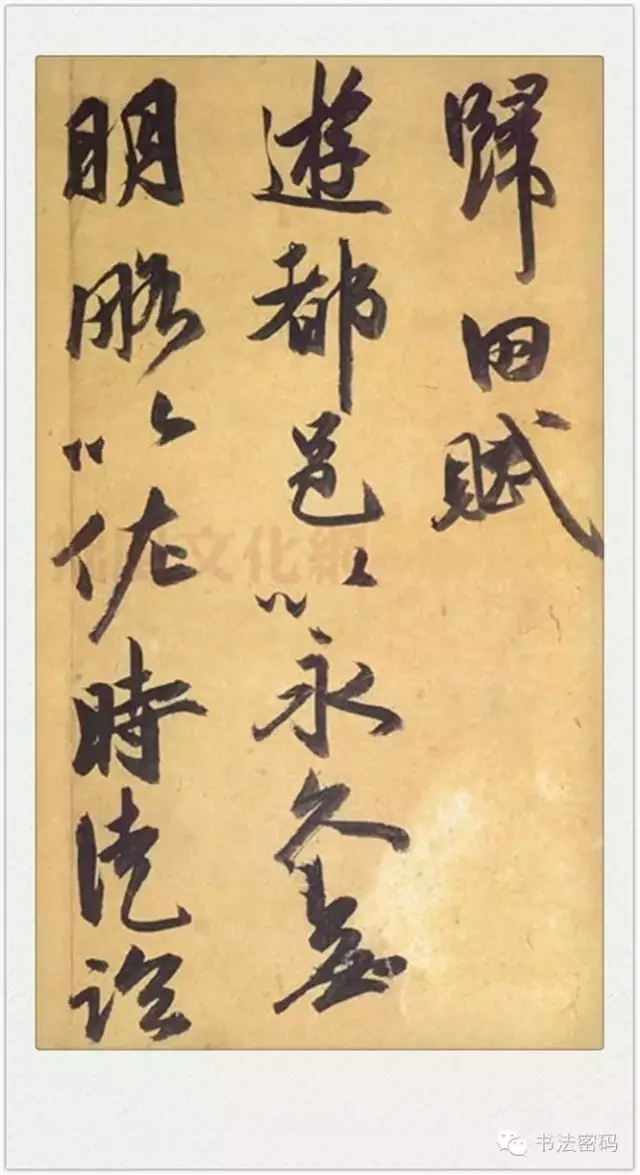 歸田賦
遊都邑以永久無
明略以佐時徒臨
文化網
书法密码